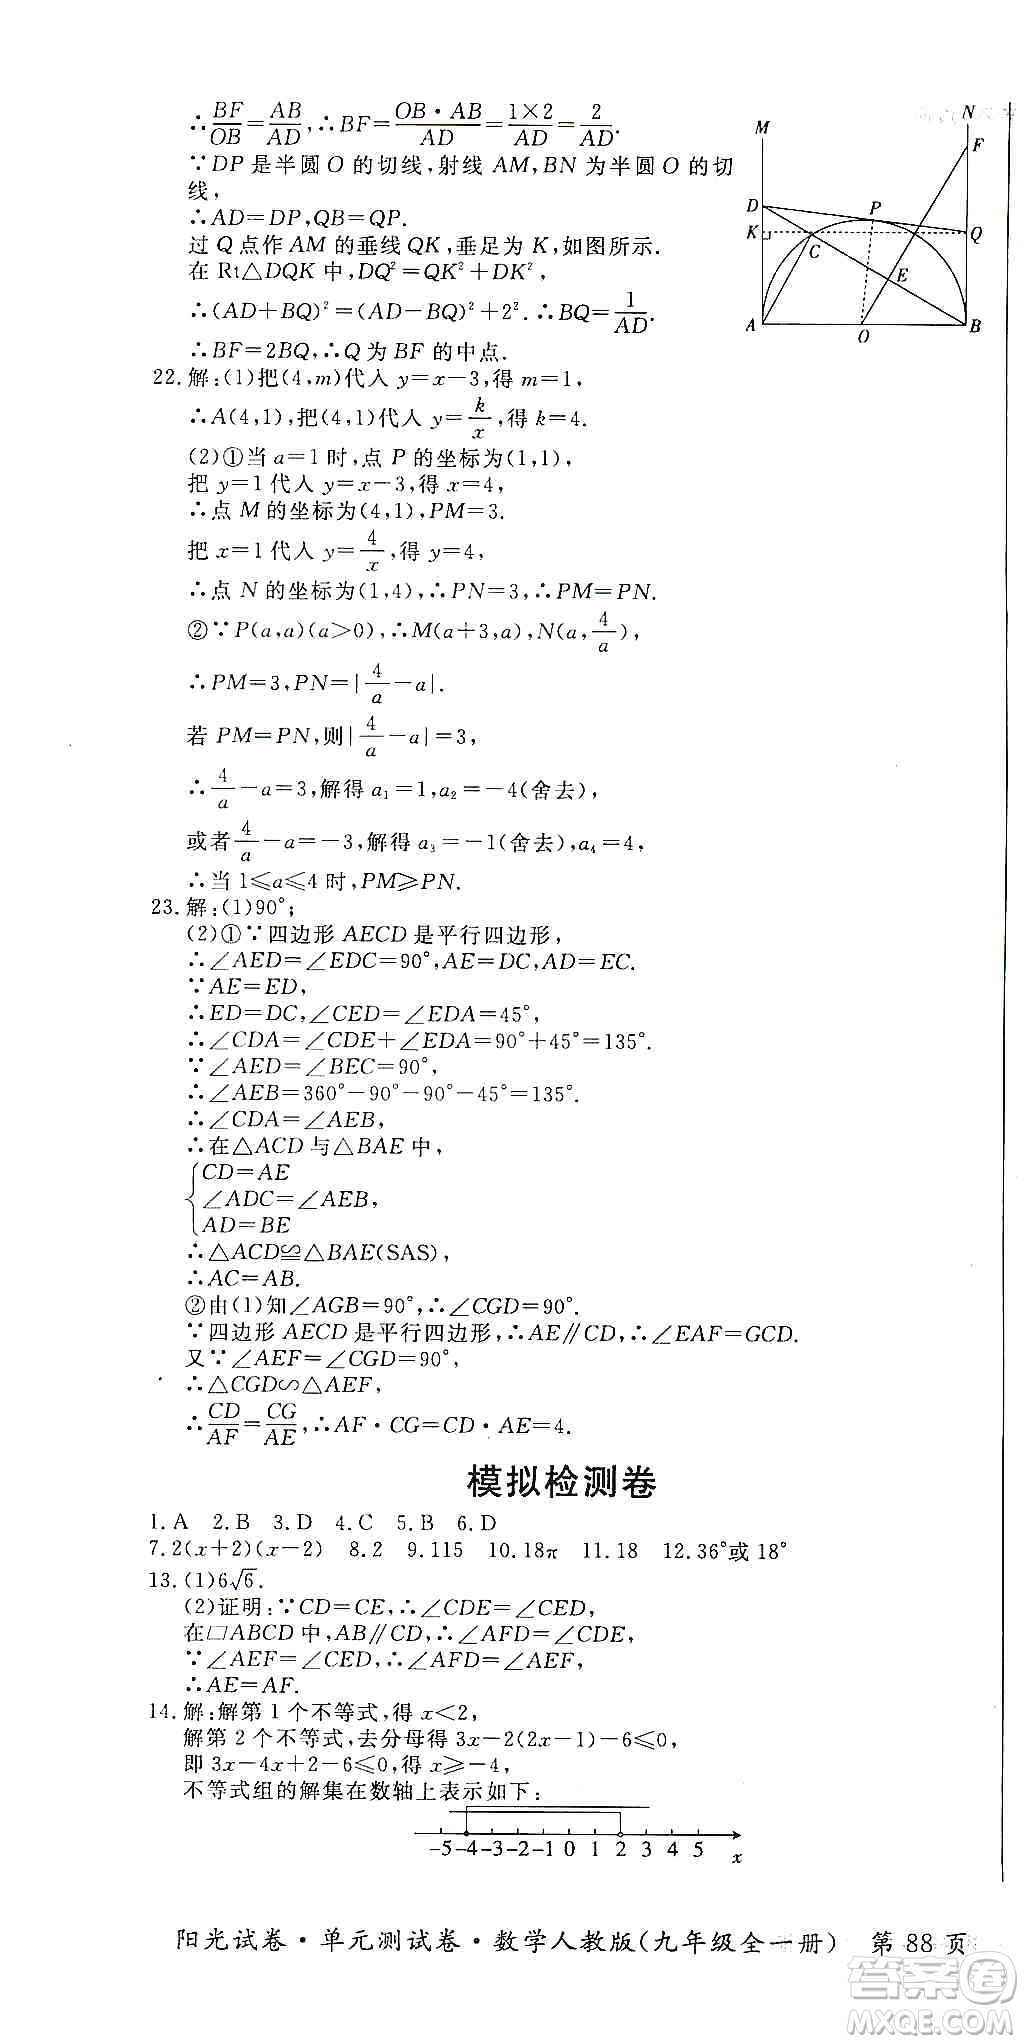 ∴BF/OB=AB/AD,∴BF=OB·AB/AD=1×2/AD=2/AD.
∵DP是半圆O的切线,射线AM,BN为半圆O的切
线,
∴AD=DP,QB=QP.
过Q点作AM的垂线QK,垂足为K,如图所示.
在Rt△DQK中,DQ²=QK²+DK²,
∴(AD+BQ)²=(AD-BQ)²+2².∴BQ=1/AD.
∴BF=2BQ,∴Q为BF的中点.
M
N
F
D
P
K
Q
C
E
A
O
B
22.解:(1)把(4,m)代入y=x-3,得m=1,
∴A(4,1),把(4,1)代入y=k/x,得k=4.
(2)①当a=1时,点P的坐标为(1,1),
把y=1代入y=x-3,得x=4,
∴点M的坐标为(4,1),PM=3.
把x=1代入y=4/x,得y=4,
∴点N的坐标为(1,4),∴PN=3,∴PM=PN.
②∵P(a,a)(a>0),∴M(a+3,a),N(a,4/a),
∴PM=3,PN=|4/a-a|.
若PM=PN,则|4/a-a|=3,
∴4/a-a=3,解得a₁=1,a₂=-4(舍去),
或者4/a-a=-3,解得a₃=-1(舍去),a₄=4,
∴当1≤a≤4时,PM≥PN.
23.解:(1)90°;
(2)①∵四边形AECD是平行四边形,
∴∠AED=∠EDC=90°,AE=DC,AD=EC.
∵AE=ED,
∴ED=DC,∠CED=∠EDA=45°,
∴∠CDA=∠CDE+∠EDA=90°+45°=135°.
∵∠AED=∠BEC=90°,
∴∠AEB=360°-90°-90°-45°=135°.
∴∠CDA=∠AEB,
∴在△ACD与△BAE中,
CD=AE
∠ADC=∠AEB,
AD=BE
∴△ACD≌△BAE(SAS),
∴AC=AB.
②由(1)知∠AGB=90°,∴∠CGD=90°.
∵四边形AECD是平行四边形,∴AE∥CD,∴∠EAF=GCD.
又∵∠AEF=∠CGD=90°,
∴△CGD∽△AEF,
∴CD/AF=CG/AE,∴AF·CG=CD·AE=4.
模拟检测卷
1.A 2.B 3.D 4.C 5.B 6.D
7.2(x+2)(x-2) 8.2 9.115 10.18π 11.18 12.36°或18°
13.(1)6√6.
(2)证明:∵CD=CE,∴∠CDE=∠CED,
在▱ABCD中,AB∥CD,∴∠AFD=∠CDE,
∵∠AEF=∠CED,∴∠AFD=∠AEF,
∴AE=AF.
14.解:解第1个不等式,得x<2,
解第2个不等式,去分母得3x-2(2x-1)-6≤0,
即3x-4x+2-6≤0,得x≥-4,
不等式组的解集在数轴上表示如下:
-5-4-3-2-1 0 1 2 3 4 5 x
阳光试卷·单元测试卷·数学人教版(九年级全一册) 第88页
答案圈
MXQE.COM